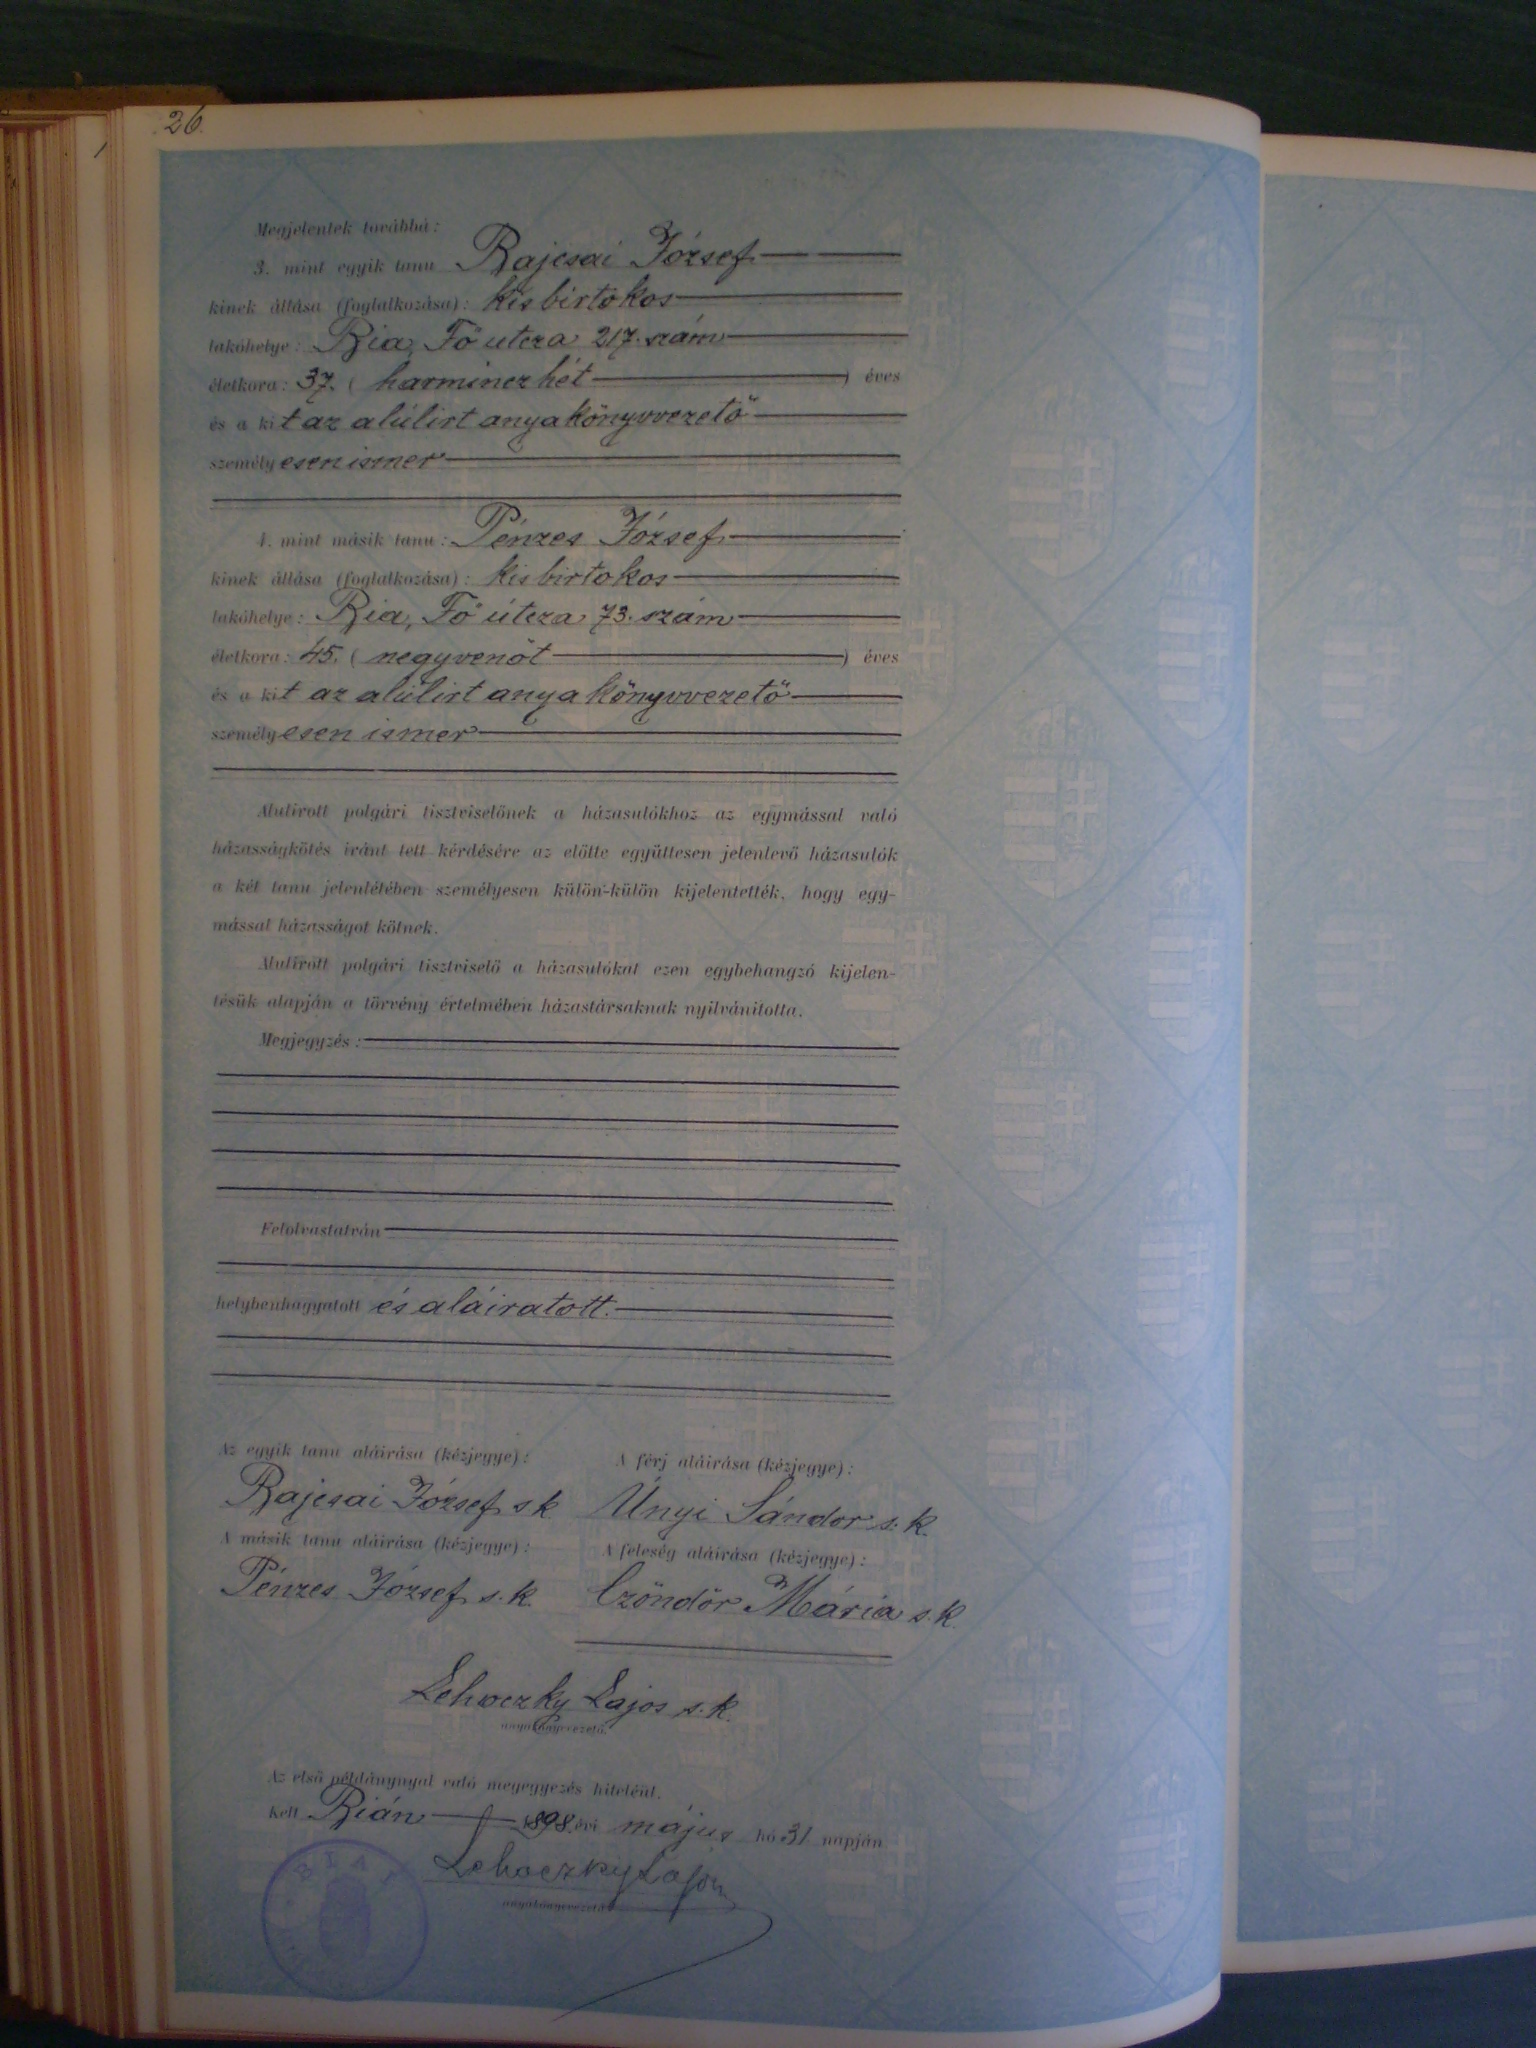 26.
Megjelentek továbbá:
3. mint egyik tanu Rajcsai József
kinek állása (foglalkozása): kisbirtokos
lakóhelye: Bia, Fő utcza 217. szám
életkora: 37. ( harmincz hét ) éves
és a kit az alúlirt anyakönyvvezető
személyesen ismer
4. mint másik tanu: Pénzes József
kinek állása (foglalkozása): kisbirtokos
lakóhelye: Bia, Fő útcza 73. szám
életkora: 45. ( negyvenöt ) éves
és a kit az alúlirt anyakönyvvezető
személyesen ismer
Alulirott polgári tisztviselőnek a házasulókhoz az egymással való
házasságkötés iránt tett kérdésére az előtte együttesen jelenlevő házasulók
a két tanu jelenlétében személyesen külön-külön kijelentették, hogy egy-
mással házasságot kötnek.
Alulirott polgári tisztviselő a házasulókat ezen egybehangzó kijelen-
tésük alapján a törvény értelmében házastársaknak nyilvánitotta.
Megjegyzés:
Felolvastatván
helybenhagyatott és aláiratott.
Az egyik tanu aláirása (kézjegye): A férj aláirása (kézjegye):
Rajcsai József s k Únyi Sándor s. k.
A másik tanu aláirása (kézjegye): A feleség aláirása (kézjegye):
Pénzes József s. k. Czöndör Mária s. k.
Lehoczky Lajos s. k.
anyakönyvvezető.
Az első példánynyal való megegyezés hiteléül.
Kelt Bián 1898. évi május hó 31 napján
Lehoczky Lajos
anyakönyvvezető